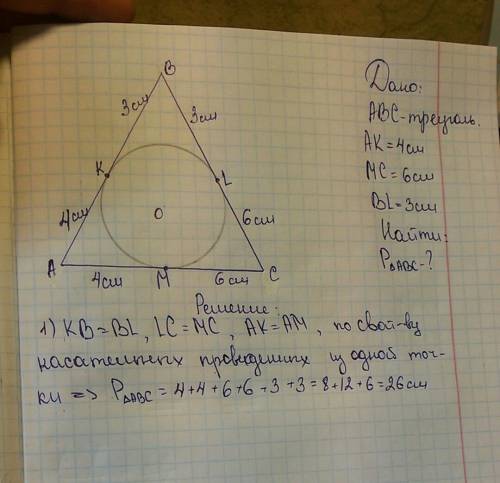 B
3см
3см
K
L
4см
O
6см
A
4см
M
6см
C
Дано:
ABC-треуголь.
AK=4см
MC=6см
BL=3см
Найти:
P△ABC-?
Решение:
1) KB=BL, LC=MC, AK=AM, по свой-ву
касательных проведённых из одной точ-
ки => P△ABC = 4+4+6+6+3+3=8+12+6=26см